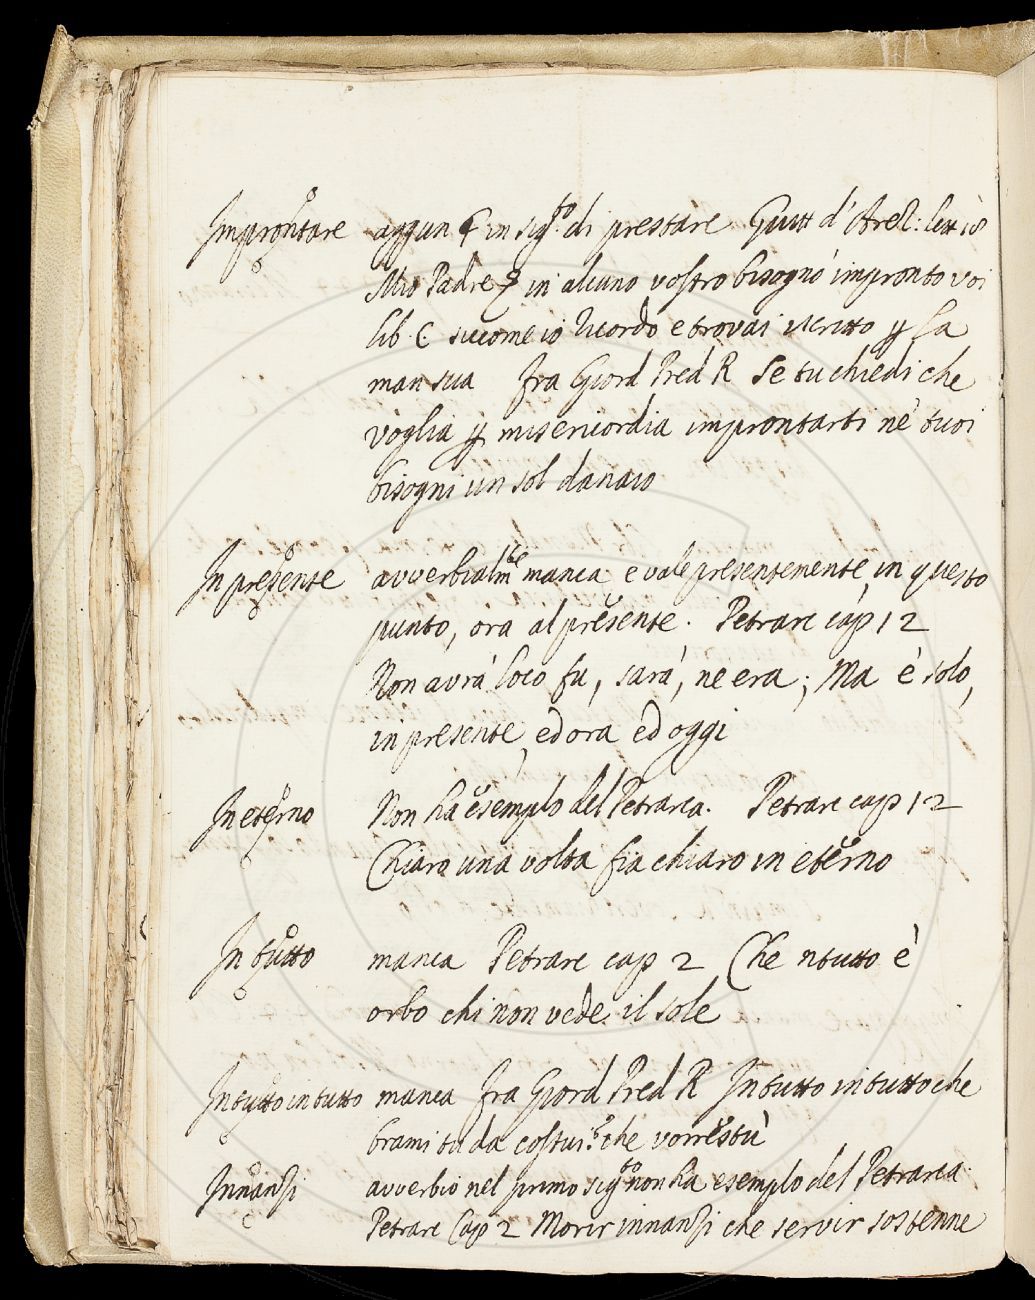 Improntare aggun in sig.to di prestare Guitt d'Arez: lett 18
Mio Padre in alcuno vostro bisogno impronto voi
lib. C siccome io ricordo e trovai scritto p sa
man sua fra Giord Pred R Se tu chiedi che
voglia p misericordia improntarti ne' tuoi
bisogni un sol danaio
In presente avverbialm.te manca e vale presentemente, in questo
punto, ora al presente. Petrarc cap 12
Non avrà loco fu, sarà, ne era; Ma è solo,
in presente, ed ora ed oggi
In eterno Non ha esemplo del Petrarca. Petrarc cap 12
Chiara una volta fia chiaro in eterno
In tutto manca Petrarc cap 2 Che ntutto è
orbo chi non vede il sole
In tutto in tutto manca fra Giord Pred R In tutto in tutto che
brami tu da costui? che vorrestù
Innanzi avverbio nel primo sig.to non ha esemplo del Petrarca
Petrarc Cap 2 Morir innanzi che servir sostenne